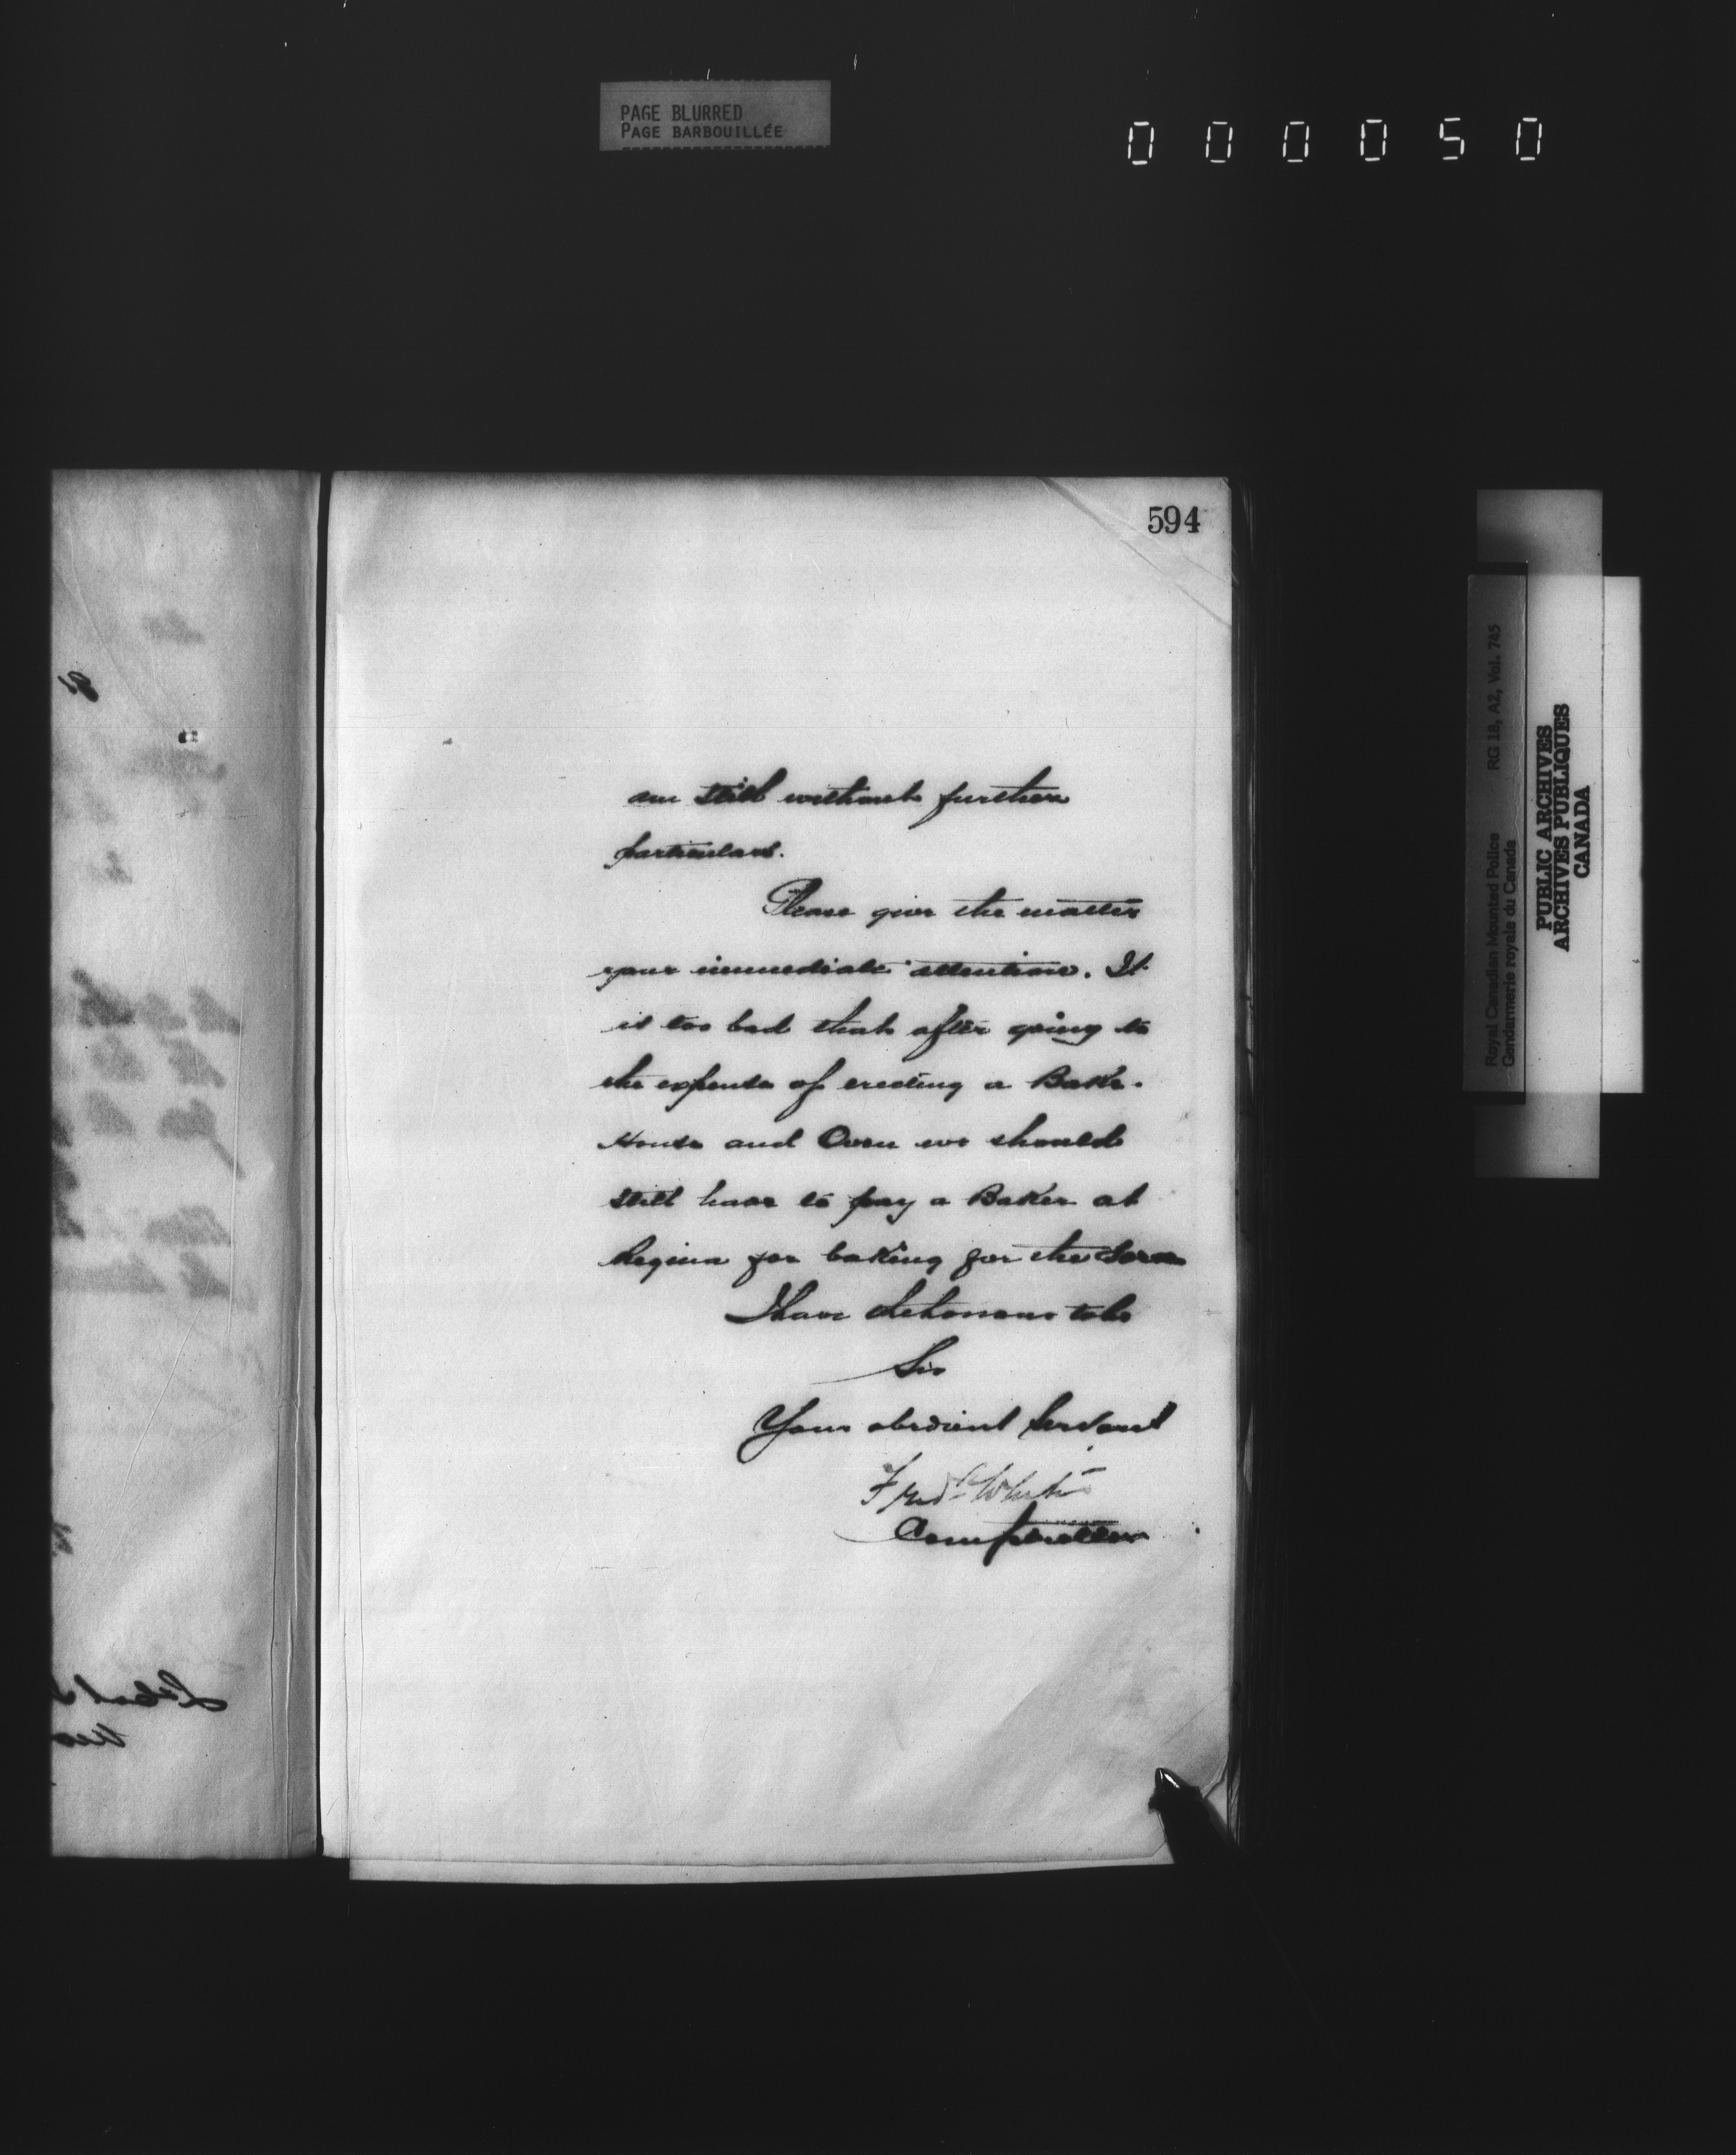 PAGE BLURRED
PAGE BARBOUILLÉE
000050
594
am still without further
particulars.
Please give the matter
your immediate attention. It
is too bad that after going to
the expense of erecting a Bake-
House and Oven we should
still have to pay a Baker at
Regina for baking for the Force
I have the honour to be
Sir
Your obedient Servant
Fred White
Comptroller
Royal Canadian Mounted Police RG 18, A2, Vol. 745
Gendarmerie royale du Canada
PUBLIC ARCHIVES
ARCHIVES PUBLIQUES
CANADA